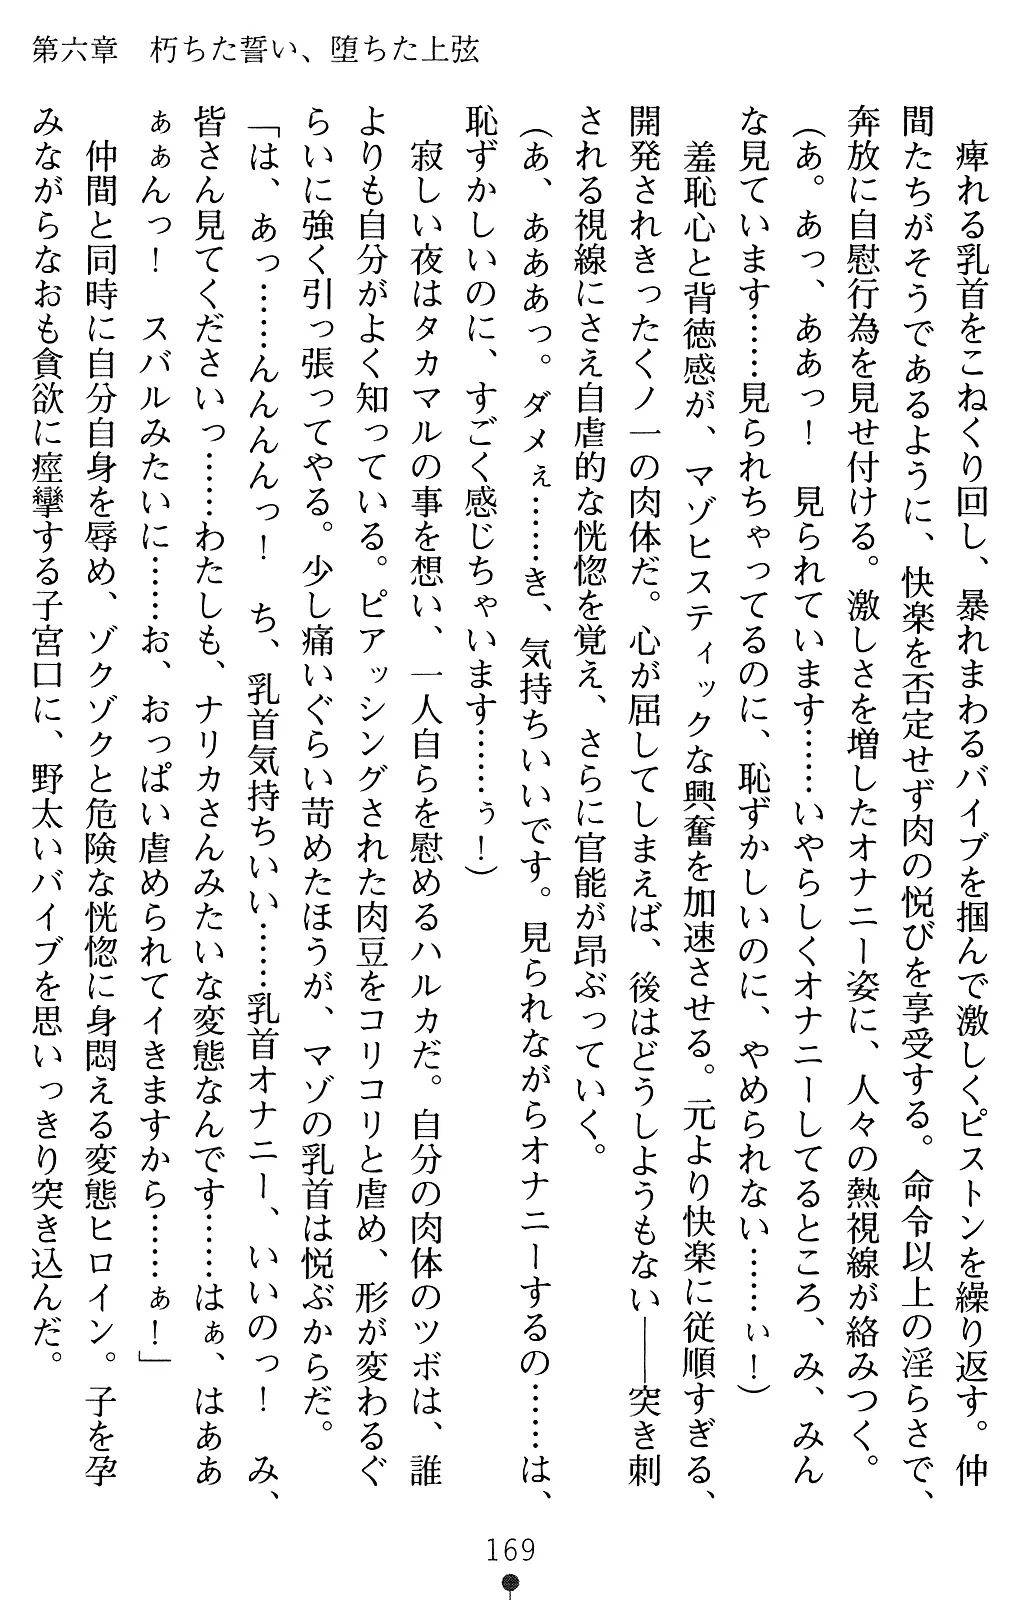 第六章　朽ちた誓い、堕ちた上弦
　痺れる乳首をこねくり回し、暴れまわるバイブを掴んで激しくピストンを繰り返す。仲
間たちがそうであるように、快楽を否定せず肉の悦びを享受する。命令以上の淫らさで、
奔放に自慰行為を見せ付ける。激しさを増したオナニー姿に、人々の熱視線が絡みつく。
（あ。あっ、ああっ！　見られています……いやらしくオナニーしてるところ、み、みん
な見ています……見られちゃってるのに、恥ずかしいのに、やめられない……ぃ！）
　羞恥心と背徳感が、マゾヒスティックな興奮を加速させる。元より快楽に従順すぎる、
開発されきったくノ一の肉体だ。心が屈してしまえば、後はどうしようもない――突き刺
される視線にさえ自虐的な恍惚を覚え、さらに官能が昂ぶっていく。
（あ、あああっ。ダメぇ……き、気持ちいいです。見られながらオナニーするの……は、
恥ずかしいのに、すごく感じちゃいます……ぅ！）
　寂しい夜はタカマルの事を想い、一人自らを慰めるハルカだ。自分の肉体のツボは、誰
よりも自分がよく知っている。ピアッシングされた肉豆をコリコリと虐め、形が変わるぐ
らいに強く引っ張ってやる。少し痛いぐらい苛めたほうが、マゾの乳首は悦ぶからだ。
「は、あっ……んんんっ！　ち、乳首気持ちいい……乳首オナニー、いいのっ！　み、
皆さん見てくださいっ……わたしも、ナリカさんみたいな変態なんです……はぁ、はああ
ぁぁんっ！　スバルみたいに……お、おっぱい虐められてイきますから……ぁ！」
　仲間と同時に自分自身を辱め、ゾクゾクと危険な恍惚に身悶える変態ヒロイン。子を孕
みながらなおも貪欲に痙攣する子宮口に、野太いバイブを思いっきり突き込んだ。
169